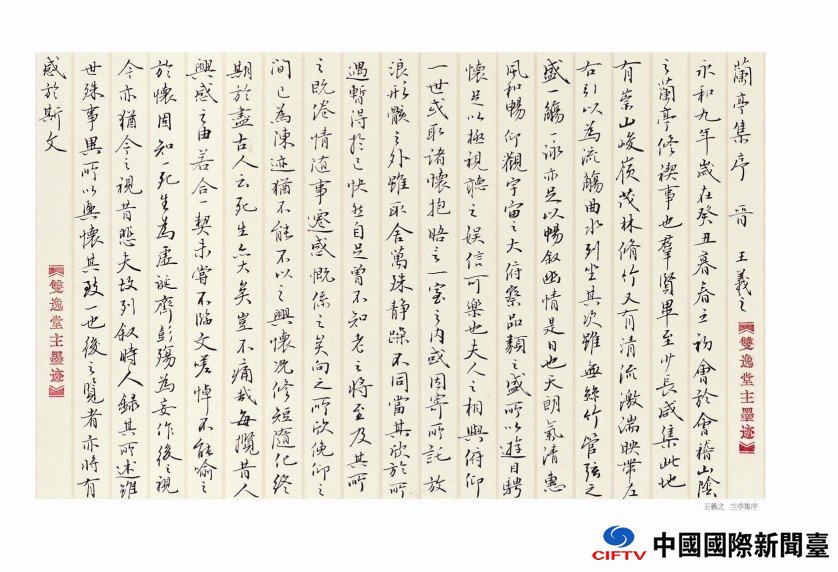 蘭亭集序 晉 王羲之
【雙逸堂主墨迹】
永和九年歲在癸丑暮春之初會於會稽山陰
之蘭亭修禊事也羣賢畢至少長咸集此地
有崇山峻嶺茂林脩竹又有清流激湍映帶左
右引以為流觴曲水列坐其次雖無絲竹管弦之
盛一觴一詠亦足以暢敘幽情是日也天朗氣清惠
風和暢仰觀宇宙之大俯察品類之盛所以遊目騁
懷足以極視聽之娛信可樂也夫人之相與俯仰
一世或取諸懷抱晤言一室之內或因寄所託放
浪形骸之外雖取舍萬殊靜躁不同當其欣於所
遇暫得於己快然自足曾不知老之將至及其所
之既倦情隨事遷感慨係之矣向之所欣俛仰之
間已為陳迹猶不能不以之興懷況修短隨化終
期於盡古人云死生亦大矣豈不痛哉每攬昔人
興感之由若合一契未嘗不臨文嗟悼不能喻之
於懷固知一死生為虛誕齊彭殤為妄作後之視
今亦猶今之視昔悲夫故列敘時人錄其所述雖
世殊事異所以興懷其致一也後之覽者亦將有
感於斯文
【雙逸堂主墨迹】
王羲之 兰亭集序
CIFTV 中國國際新聞臺